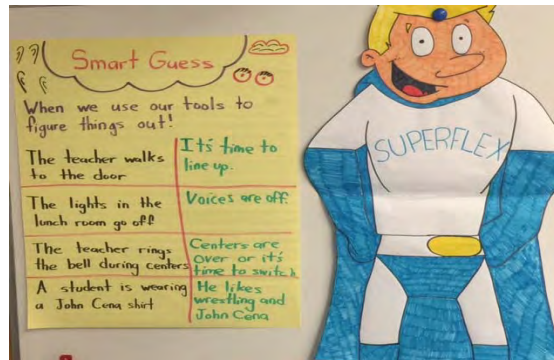 Smart Guess
When we use our tools to
figure things out!
The teacher walks
to the door
It's time to
line up.
The lights in the
lunch room go off
Voices are off.
The teacher rings
the bell during centers
Centers are
over or it's
time to switch
A student is wearing
a John Cena shirt
He likes
wrestling and
John Cena
SUPERFLEX